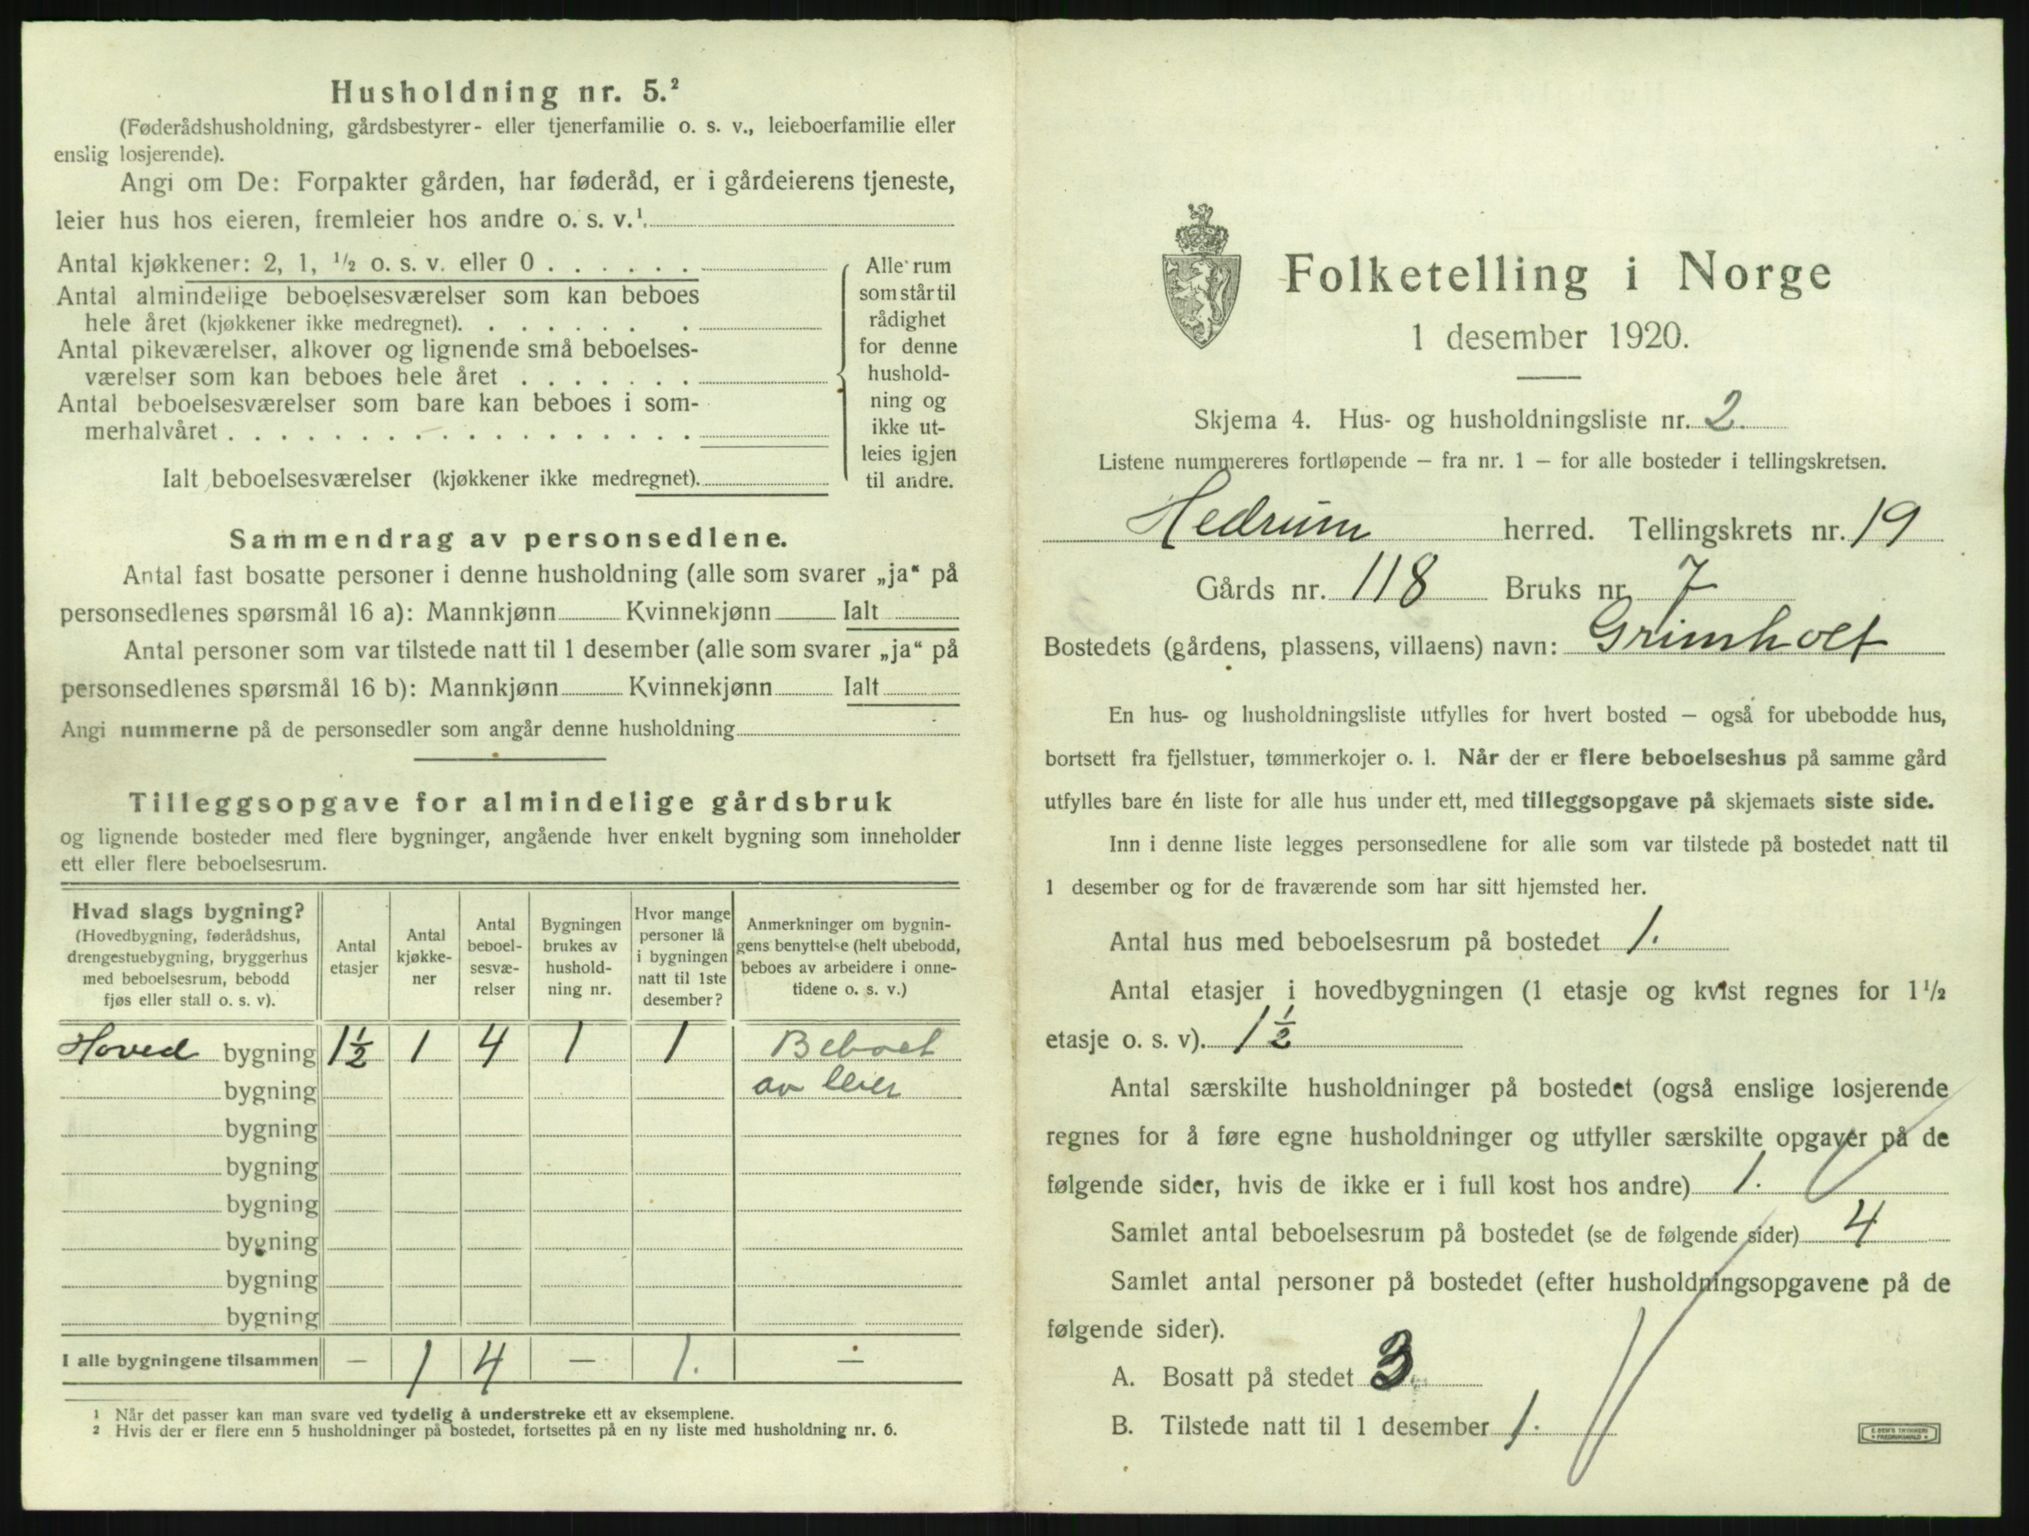 Husholdning nr. 5.²
(Føderådshusholdning, gårdsbestyrer- eller tjenerfamilie o. s. v., leieboerfamilie eller
enslig losjerende).
Angi om De: Forpakter gården, har føderåd, er i gårdeierens tjeneste,
leier hus hos eieren, fremleier hos andre o. s. v.¹
Antal kjøkkener: 2, 1, ½ o. s. v. eller 0 . . . . . .
Antal almindelige beboelsesværelser som kan beboes
hele året (kjøkkener ikke medregnet). . . . . . . .
Antal pikeværelser, alkover og lignende små beboelses-
værelser som kan beboes hele året . . . . . . .
Antal beboelsesværelser som bare kan beboes i som-
merhalvåret . . . . . . . . . . . . . . . . . .
Ialt beboelsesværelser (kjøkkener ikke medregnet).
Alle rum
som står til
rådighet
for denne
hushold-
ning og
ikke ut-
leies igjen
til andre.
Sammendrag av personsedlene.
Antal fast bosatte personer i denne husholdning (alle som svarer „ja“ på
personsedlenes spørsmål 16 a): Mannkjønn Kvinnekjønn Ialt
Antal personer som var tilstede natt til 1 desember (alle som svarer „ja“ på
personsedlenes spørsmål 16 b): Mannkjønn Kvinnekjønn Ialt
Angi nummerne på de personsedler som angår denne husholdning
Tilleggsopgave for almindelige gårdsbruk
og lignende bosteder med flere bygninger, angående hver enkelt bygning som inneholder
ett eller flere beboelsesrum.
Hvad slags bygning?
(Hovedbygning, føderådshus,
drengestuebygning, bryggerhus
med beboelsesrum, bebodd
fjøs eller stall o. s. v).
Antal
etasjer
Antal
kjøkke-
ner
Antal
beboel-
sesvæ-
relser
Bygningen
brukes av
hushold-
ning nr.
Hvor mange
personer lå
i bygningen
natt til 1ste
desember?
Anmerkninger om bygnin-
gens benyttelse (helt ubebodd,
beboes av arbeidere i onne-
tidene o. s. v.)
Hoved bygning 1½ 1 4 1 1 Beboet
bygning av leier
bygning
bygning
bygning
bygning
bygning
bygning
I alle bygningene tilsammen — 1 4 — 1. —
¹ Når det passer kan man svare ved tydelig å understreke ett av eksemplene.
² Hvis der er flere enn 5 husholdninger på bostedet, fortsettes på en ny liste med husholdning nr. 6.
Folketelling i Norge
1 desember 1920.
Skjema 4. Hus- og husholdningsliste nr. 2.
Listene nummereres fortløpende — fra nr. 1 — for alle bosteder i tellingskretsen.
Hedrum herred. Tellingskrets nr. 19
Gårds nr. 118 Bruks nr. 7
Bostedets (gårdens, plassens, villaens) navn: Grimholt
En hus- og husholdningsliste utfylles for hvert bosted — også for ubebodde hus,
bortsett fra fjellstuer, tømmerkojer o. l. Når der er flere beboelseshus på samme gård
utfylles bare én liste for alle hus under ett, med tilleggsopgave på skjemaets siste side.
Inn i denne liste legges personsedlene for alle som var tilstede på bostedet natt til
1 desember og for de fraværende som har sitt hjemsted her.
Antal hus med beboelsesrum på bostedet 1.
Antal etasjer i hovedbygningen (1 etasje og kvist regnes for 1½
etasje o. s. v). 1½
Antal særskilte husholdninger på bostedet (også enslige losjerende
regnes for å føre egne husholdninger og utfyller særskilte opgaver på de
følgende sider, hvis de ikke er i full kost hos andre) 1.
Samlet antal beboelsesrum på bostedet (se de følgende sider) 4
Samlet antal personer på bostedet (efter husholdningsopgavene på de
følgende sider).
A. Bosatt på stedet 3
B. Tilstede natt til 1 desember 1.